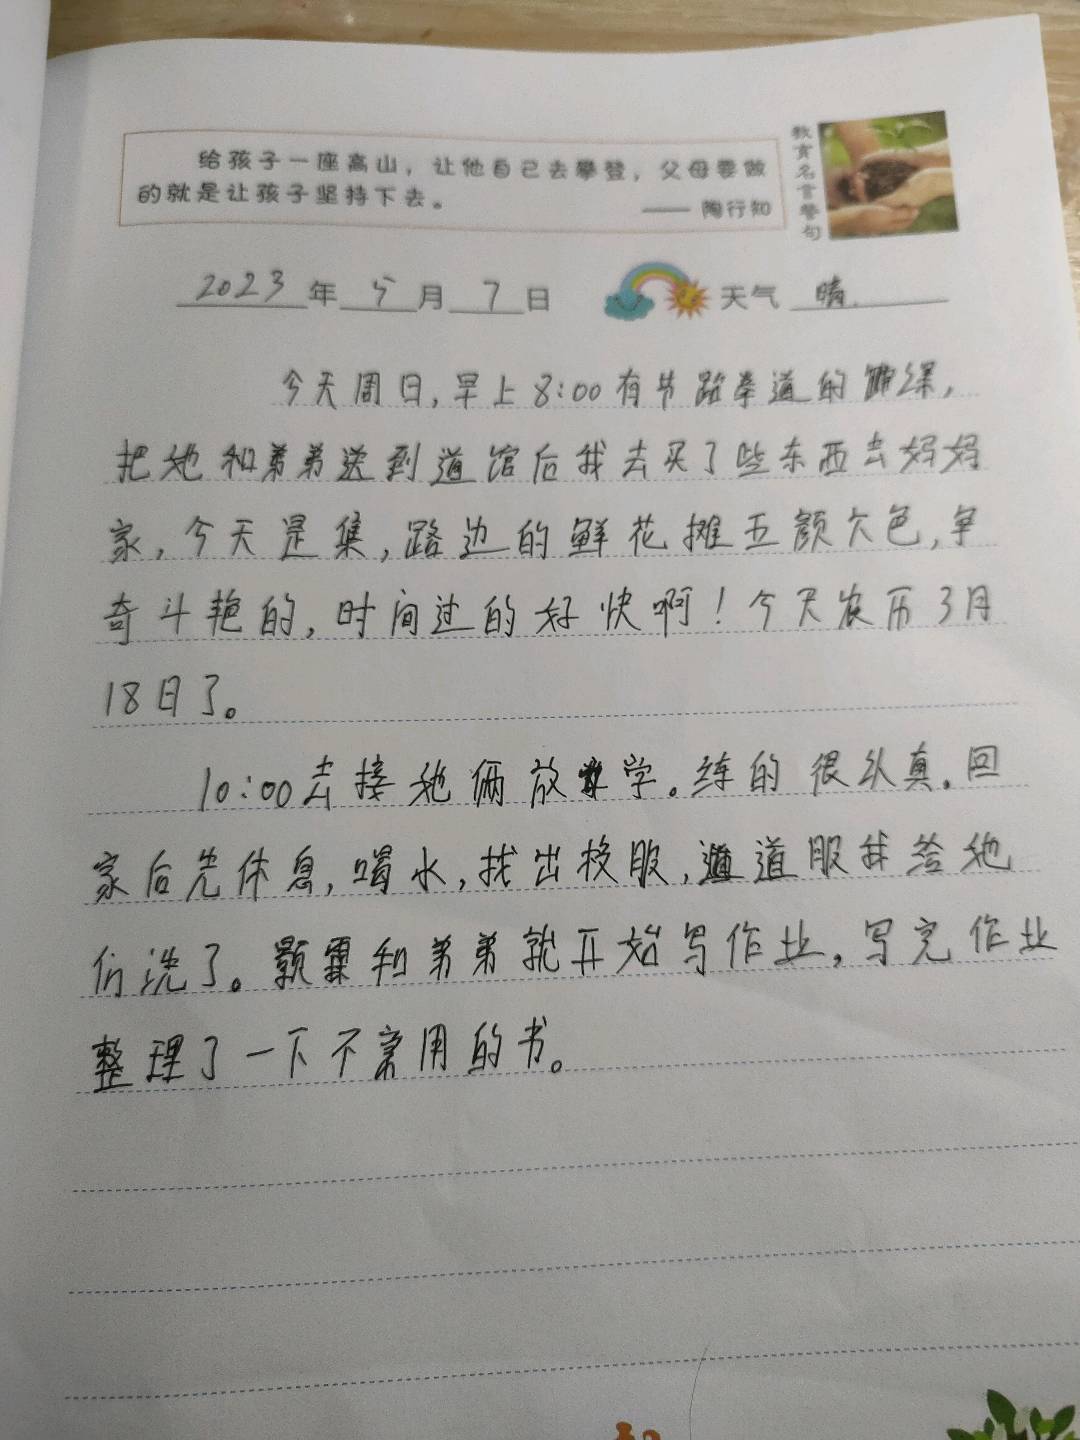 给孩子一座高山，让他自己去攀登，父母要做
的就是让孩子坚持下去。
—— 陶行知
教育名言警句
2023年5月7日 天气 晴.
今天周日,早上8:00有节跆拳道的课,
把她和弟弟送到道馆后我去买了些东西去妈妈
家,今天是集,路边的鲜花摊五颜六色,争
奇斗艳的,时间过的好快啊!今天农历3月
18日了。
10:00去接她俩放学。练的很认真.回
家后先休息,喝水,找出校服,道服我给她
们洗了。颢霖和弟弟就开始写作业,写完作业
整理了一下不常用的书。